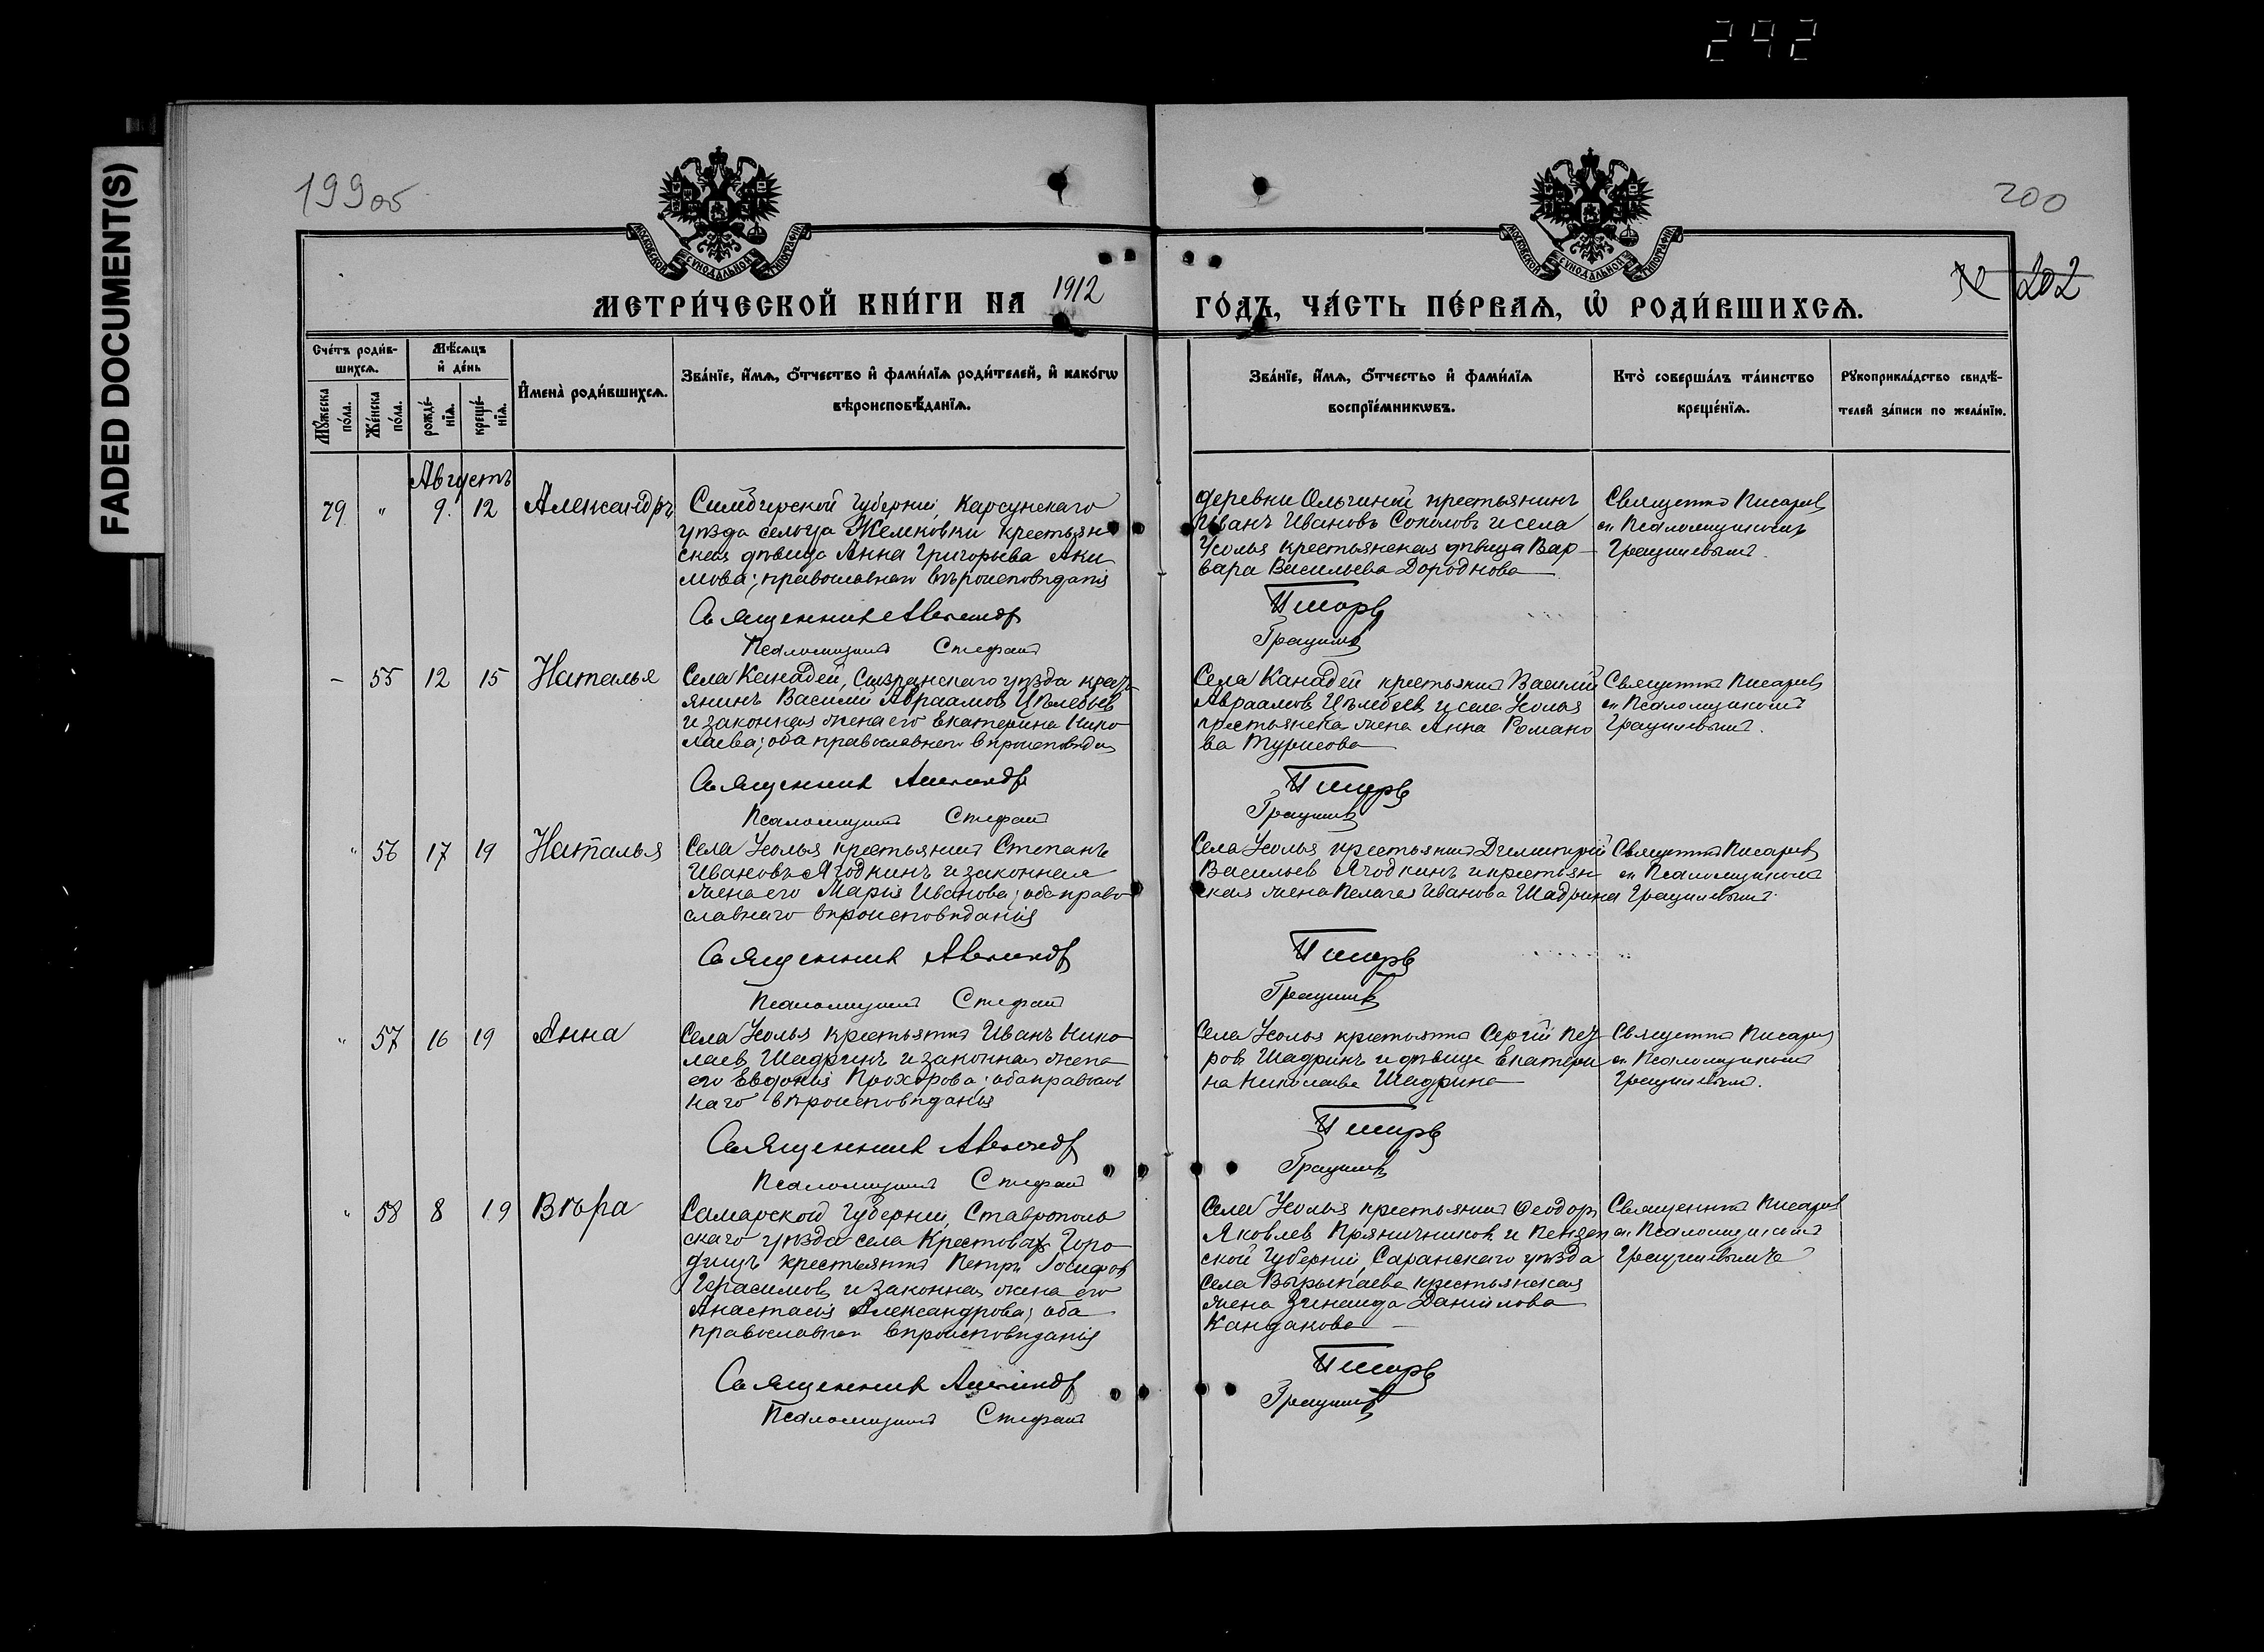 292
FADED DOCUMENT(S)
199об
200
№ 202
МОСКОВСКОЙ СѴНОДАЛЬНОЙ ТИПОГРАФІИ
МОСКОВСКОЙ СѴНОДАЛЬНОЙ ТИПОГРАФІИ
МЕТРИ́ЧЕСКОЙ КНИ́ГИ НА 1912 ГО́ДЪ, ЧА́СТЬ ПЕ́РВАѦ, Ѽ РОДИ́ВШИХСѦ.
Сче́тъ роди́в-
шихсѧ.
Мꙋ́жеска по́ла.
Же́нска по́ла.
Мѣ́сѧцъ и҆ де́нь
рожде́-
нїѧ.
креще́-
нїѧ.
И҆мена̀ роди́вшихсѧ.
Зва́нїе, и҆́мѧ, ѻ҆́тчество и҆ фами́лїѧ роди́телей, и҆ како́гѡ
вѣроисповѣ́данїѧ.
Зва́нїе, и҆́мѧ, ѻ҆́тчество и҆ фами́лїѧ
воспрїе́мникѡвъ.
Кто̀ соверша́лъ та́инство
креще́нїѧ.
Рꙋкоприкла́дство свидѣ́-
телей за́писи по жела́нїю.
Августъ
79 " 9. 12 Александръ
Симбирской губерніи, Карсунскаго
уѣзда сельца Жемковки крестьян
ская дѣвица Анна Григорьева Аки
мова; православнаго вѣроисповѣданія
Священникъ Александръ
Псаломщикъ Стефанъ
деревни Ольгиной крестьянинъ
Иванъ Ивановъ Соколовъ и села
Усолья крестьянская дѣвица Вар
вара Васильева Дороднова
Писаревъ
Грацилевъ
Священникъ Писаревъ
съ Псаломщикомъ
Грацилевымъ.
- 55 12 15 Наталья
Села Канадей, Сызранскаго уѣзда крест
янинъ Василій Авраамовъ Цѣлебѣевъ
и законная жена его Екатерина Нико
лаева; оба православнаго вѣроисповѣдан
Священникъ Александръ
Псаломщикъ Стефанъ
Села Канадей крестьянинъ Василій
Авраамовъ Цѣлебѣевъ и села Усолья
крестьянска жена Анна Романо
ва
Писаревъ
Грацилевъ
Священникъ Писаревъ
съ Псаломщикомъ
Грацилевымъ.
" 56 17 19 Наталья
Села Усолья крестьянинъ Степанъ
Ивановъ Ягодкинъ и законная
жена его Марія Иванова; оба право
славнаго вѣроисповѣданія
Священникъ Александръ
Псаломщикъ Стефанъ
Села Усолья крестьянинъ Димитрій
Васильевъ Ягодкинъ и крестьян
ская жена Пелагея Иванова Шадрина
Писаревъ
Грацилевъ
Священникъ Писаревъ
съ Псаломщикомъ
Грацилевымъ.
" 57 16 19 Анна
Села Усолья крестьянинъ Иванъ Нико
лаевъ Шадринъ и законная жена
его Евдокія Прохорова; оба православ
наго вѣроисповѣданія
Священникъ Александръ
Псаломщикъ Стефанъ
Села Усолья крестьянинъ Сергій Пет
ровъ Шадринъ и дѣвица Екатери
на Николаева Шадрина
Писаревъ
Грацилевъ
Священникъ Писаревъ
съ Псаломщикомъ
Грацилевымъ.
" 58 8 19 Вѣра
Самарской губерніи, Ставрополь
скаго уѣзда села Крестовыхъ Горо
дищъ крестьянинъ Петръ Іосифовъ
Герасимовъ и законная жена его
Анастасія Александрова; оба
православнаго вѣроисповѣданія
Священникъ Александръ
Псаломщикъ Стефанъ
Села Усолья крестьянинъ Ѳеодоръ
Яковлевъ Пряничниковъ и Пензен
ской губерніи, Саранскаго уѣзда
села Вырыпаева крестьянская
жена Зинаида Даніилова
Канданова
Писаревъ
Грацилевъ
Священникъ Писаревъ
съ Псаломщикомъ
Грацилевымъ